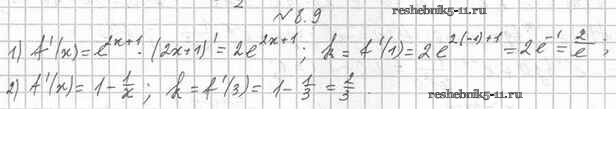 №8.9
reshebnik5-11.ru
1) f'(x)=e^{2x+1}·(2x+1)'=2e^{2x+1}; k=f'(1)=2e^{2(-1)+1}=2e^{-1}=2/e;
2) f'(x)=1-1/x; k=f'(3)=1-1/3=2/3.
reshebnik5-11.ru